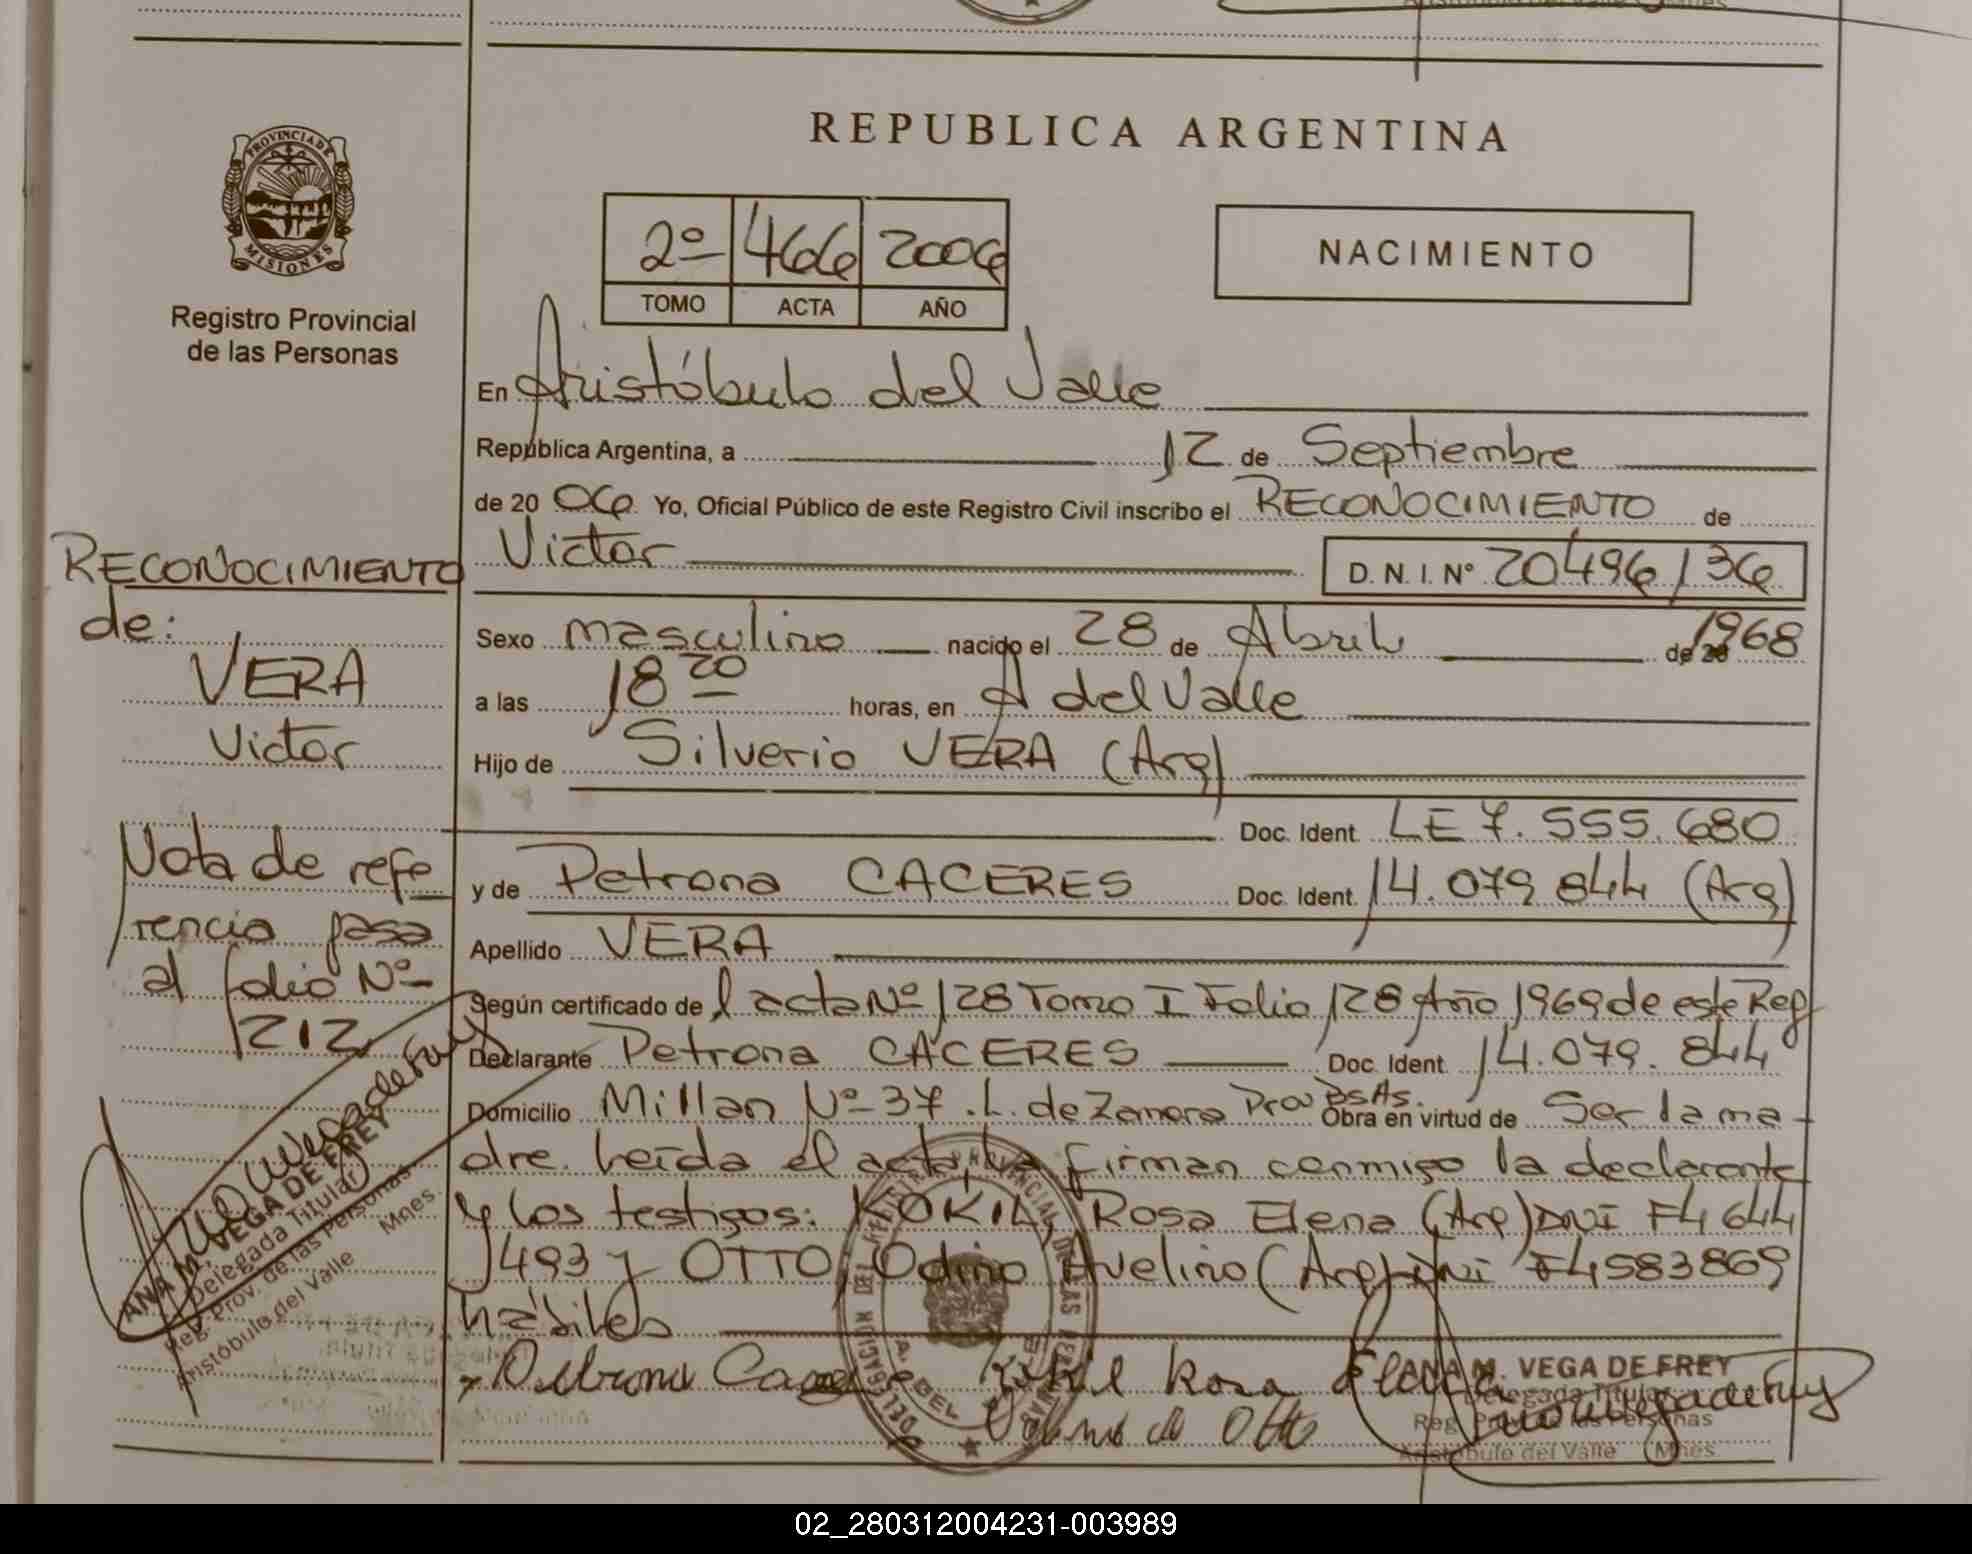 REPUBLICA ARGENTINA
PROVINCIA DE
MISIONES
Registro Provincial
de las Personas
2º 466 2006
TOMO ACTA AÑO
NACIMIENTO
En Aristóbulo del Valle
República Argentina, a 12 de Septiembre
de 20 06 Yo, Oficial Público de este Registro Civil inscribo el RECONOCIMIENTO de
Victor D.N.I. Nº 20496136
Sexo masculino nacido el 28 de Abril de 1968
a las 18 20 horas, en A del Valle
Hijo de Silverio VERA (Arg)
Doc. Ident. LE 7.555.680
y de Petrona CACERES Doc. Ident. 14.079 844 (Arg)
Apellido VERA
Según certificado de l acta Nº 128 Tomo I Folio 128 Año 1969 de este Reg
Declarante Petrona CACERES Doc. Ident. 14.079.844
Domicilio Millan Nº 37 .L. de Zamora Prov BsAs. Obra en virtud de Ser la ma-
dre. Leída el acta, la firman conmigo la declarante
y los testigos: KOKIL, Rosa Elena (Arg) DNI F4644
1493 y OTTO, Odino Avelino (Arg) DNI 14583869
hábiles
RECONOCIMIENTO
de:
VERA
Victor
Nota de refe
rencia pasa
al folio Nº
1212
ANA M. VEGA DE FREY
Delegada Titular
Reg. Prov. de las Personas
Aristóbulo del Valle Mnes.
Rosa Elena
Otto
ANA M. VEGA DE FREY
Delegada Titular
Reg. Prov. de las Personas
Aristóbulo del Valle Mnes.
02_280312004231-003989